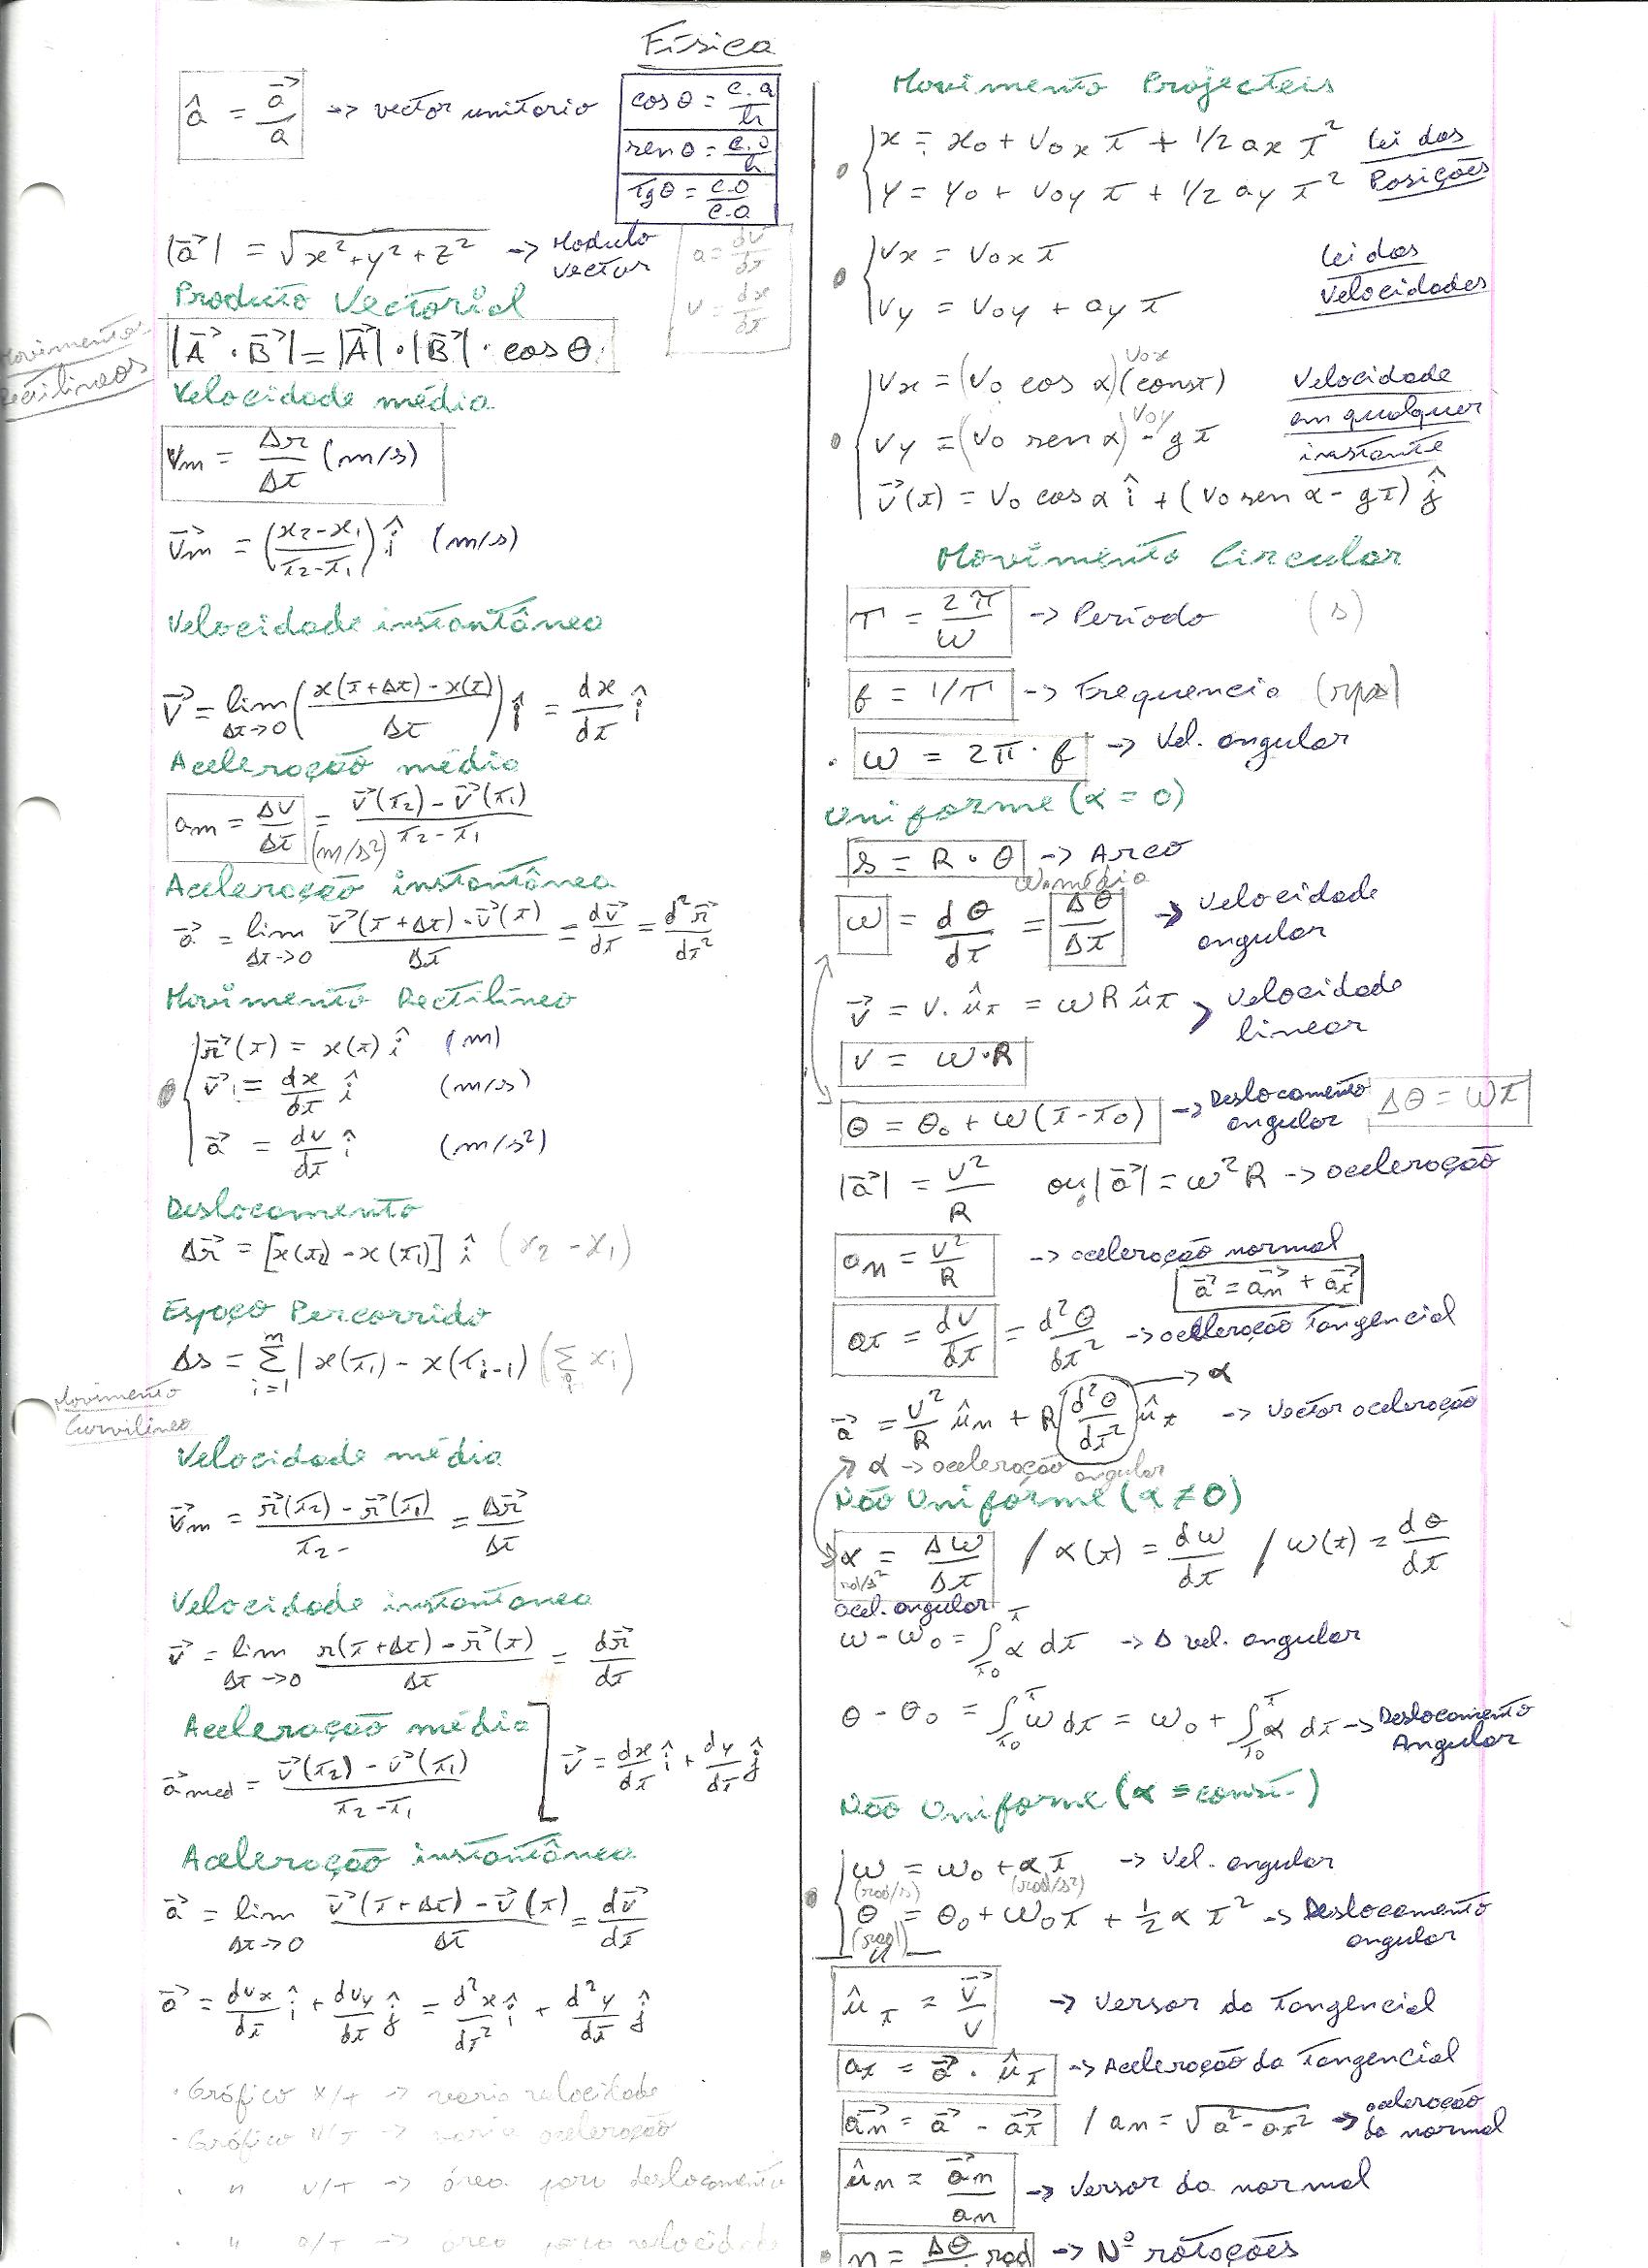 Física
â = a⃗/a -> vector unitario
cos θ = c.a/h
sen θ = c.o/h
Tg θ = c.o/c.a
|a⃗| = √(x²+y²+z²) -> Modulo vector
a = dv/dt
v = dx/dt
Produto Vectorial
Movimentos Rectilineos
|A⃗ · B⃗| = |A⃗| · |B⃗| · cos θ
Velocidade média
Vm = Δr/Δt (m/s)
V⃗m = ((x2-x1)/(t2-t1)) î (m/s)
Velocidade instantânea
V⃗ = lim Δt->0 ((x(t+Δt) - x(t))/Δt) î = dx/dt î
Aceleração média
am = Δv/Δt = (v⃗(t2) - v⃗(t1))/(t2-t1) (m/s²)
Aceleração instantânea
a⃗ = lim Δt->0 (v⃗(t+Δt) - v⃗(t))/Δt = dv⃗/dt = d²r⃗/dt²
Movimento Rectilíneo
r⃗(t) = x(t) î (m)
v⃗ = dx/dt î (m/s)
a⃗ = dv/dt î (m/s²)
Deslocamento
Δr⃗ = [x(t2) - x(t1)] î (x2 - x1)
Espaço Percorrido
Δs = Σ i=1 n |x(ti) - x(ti-1) (Σ xi)
Movimento Curvilíneo
Velocidade média
v⃗m = (r⃗(t2) - r⃗(t1))/(t2 -) = Δr⃗/Δt
Velocidade instantanea
v⃗ = lim Δt->0 (r(t+Δt) - r⃗(t))/Δt = dr⃗/dt
Aceleração média
a⃗med = (v⃗(t2) - v⃗(t1))/(t2-t1)
v⃗ = dx/dt î + dy/dt ĵ
Aceleração instantânea
a⃗ = lim Δt->0 (v⃗(t+Δt) - v⃗(t))/Δt = dv⃗/dt
a⃗ = dvx/dt î + dvy/dt ĵ = d²x/dt² î + d²y/dt² ĵ
· Gráfico x/t -> varia velocidade
· Gráfico v/t -> varia aceleração
· " v/t -> área para deslocamento
· " a/t -> área para velocidade
Movimento Projecteis
x = x0 + v0x t + 1/2 ax t² Lei das
y = y0 + v0y t + 1/2 ay t² Posições
vx = v0x t Lei das
vy = v0y + ay t Velocidades
vx = (v0 cos α) v0x (const) Velocidade
vy = (v0 sen α) v0y - gt em qualquer instante
v⃗(t) = v0 cos α î + (v0 sen α - gt) ĵ
Movimento Circular
T = 2π/ω -> Período (s)
f = 1/T -> Frequencia
· ω = 2π · f -> Vel. angular
Uniforme (α = 0)
s = R · θ -> Arco
ω média
ω = dθ/dt = Δθ/Δt -> Velocidade angular
v⃗ = v. ût = ωR ût > Velocidade linear
v = ω·R
θ = θ0 + ω(t-t0) -> Deslocamento angular Δθ = ωt
|a⃗| = v²/R ou |a⃗| = ω²R -> aceleração
an = v²/R -> aceleração normal
a⃗ = a⃗n + a⃗t
at = dv/dt = d²θ/dt² -> aceleração tangencial
a⃗ = v²/R ûn + R (d²θ/dt²) ût -> Vector aceleração
-> α
α -> aceleração angular
Não Uniforme (α ≠ 0)
α = Δω/Δt / α(t) = dω/dt / ω(t) = dθ/dt
rad/s²
acel. angular
ω - ω0 = ∫t0 t α dt -> Δ vel. angular
θ - θ0 = ∫t0 t ω dt = ω0 + ∫t0 t α dt -> Deslocamento Angular
Não Uniforme (α = const.)
ω = ω0 + α t -> Vel. angular
(rad/s) (rad/s²)
θ = θ0 + ω0t + 1/2 α t² -> Deslocamento angular
(rad)
ût = v⃗/v -> Versor da Tangencial
at = a⃗ · ût -> Aceleração da Tangencial
a⃗n = a⃗ - a⃗t / an = √(a²-at²) -> aceleração da normal
ûn = a⃗n/an -> Versor da normal
n = Δθ rad -> Nº rotações